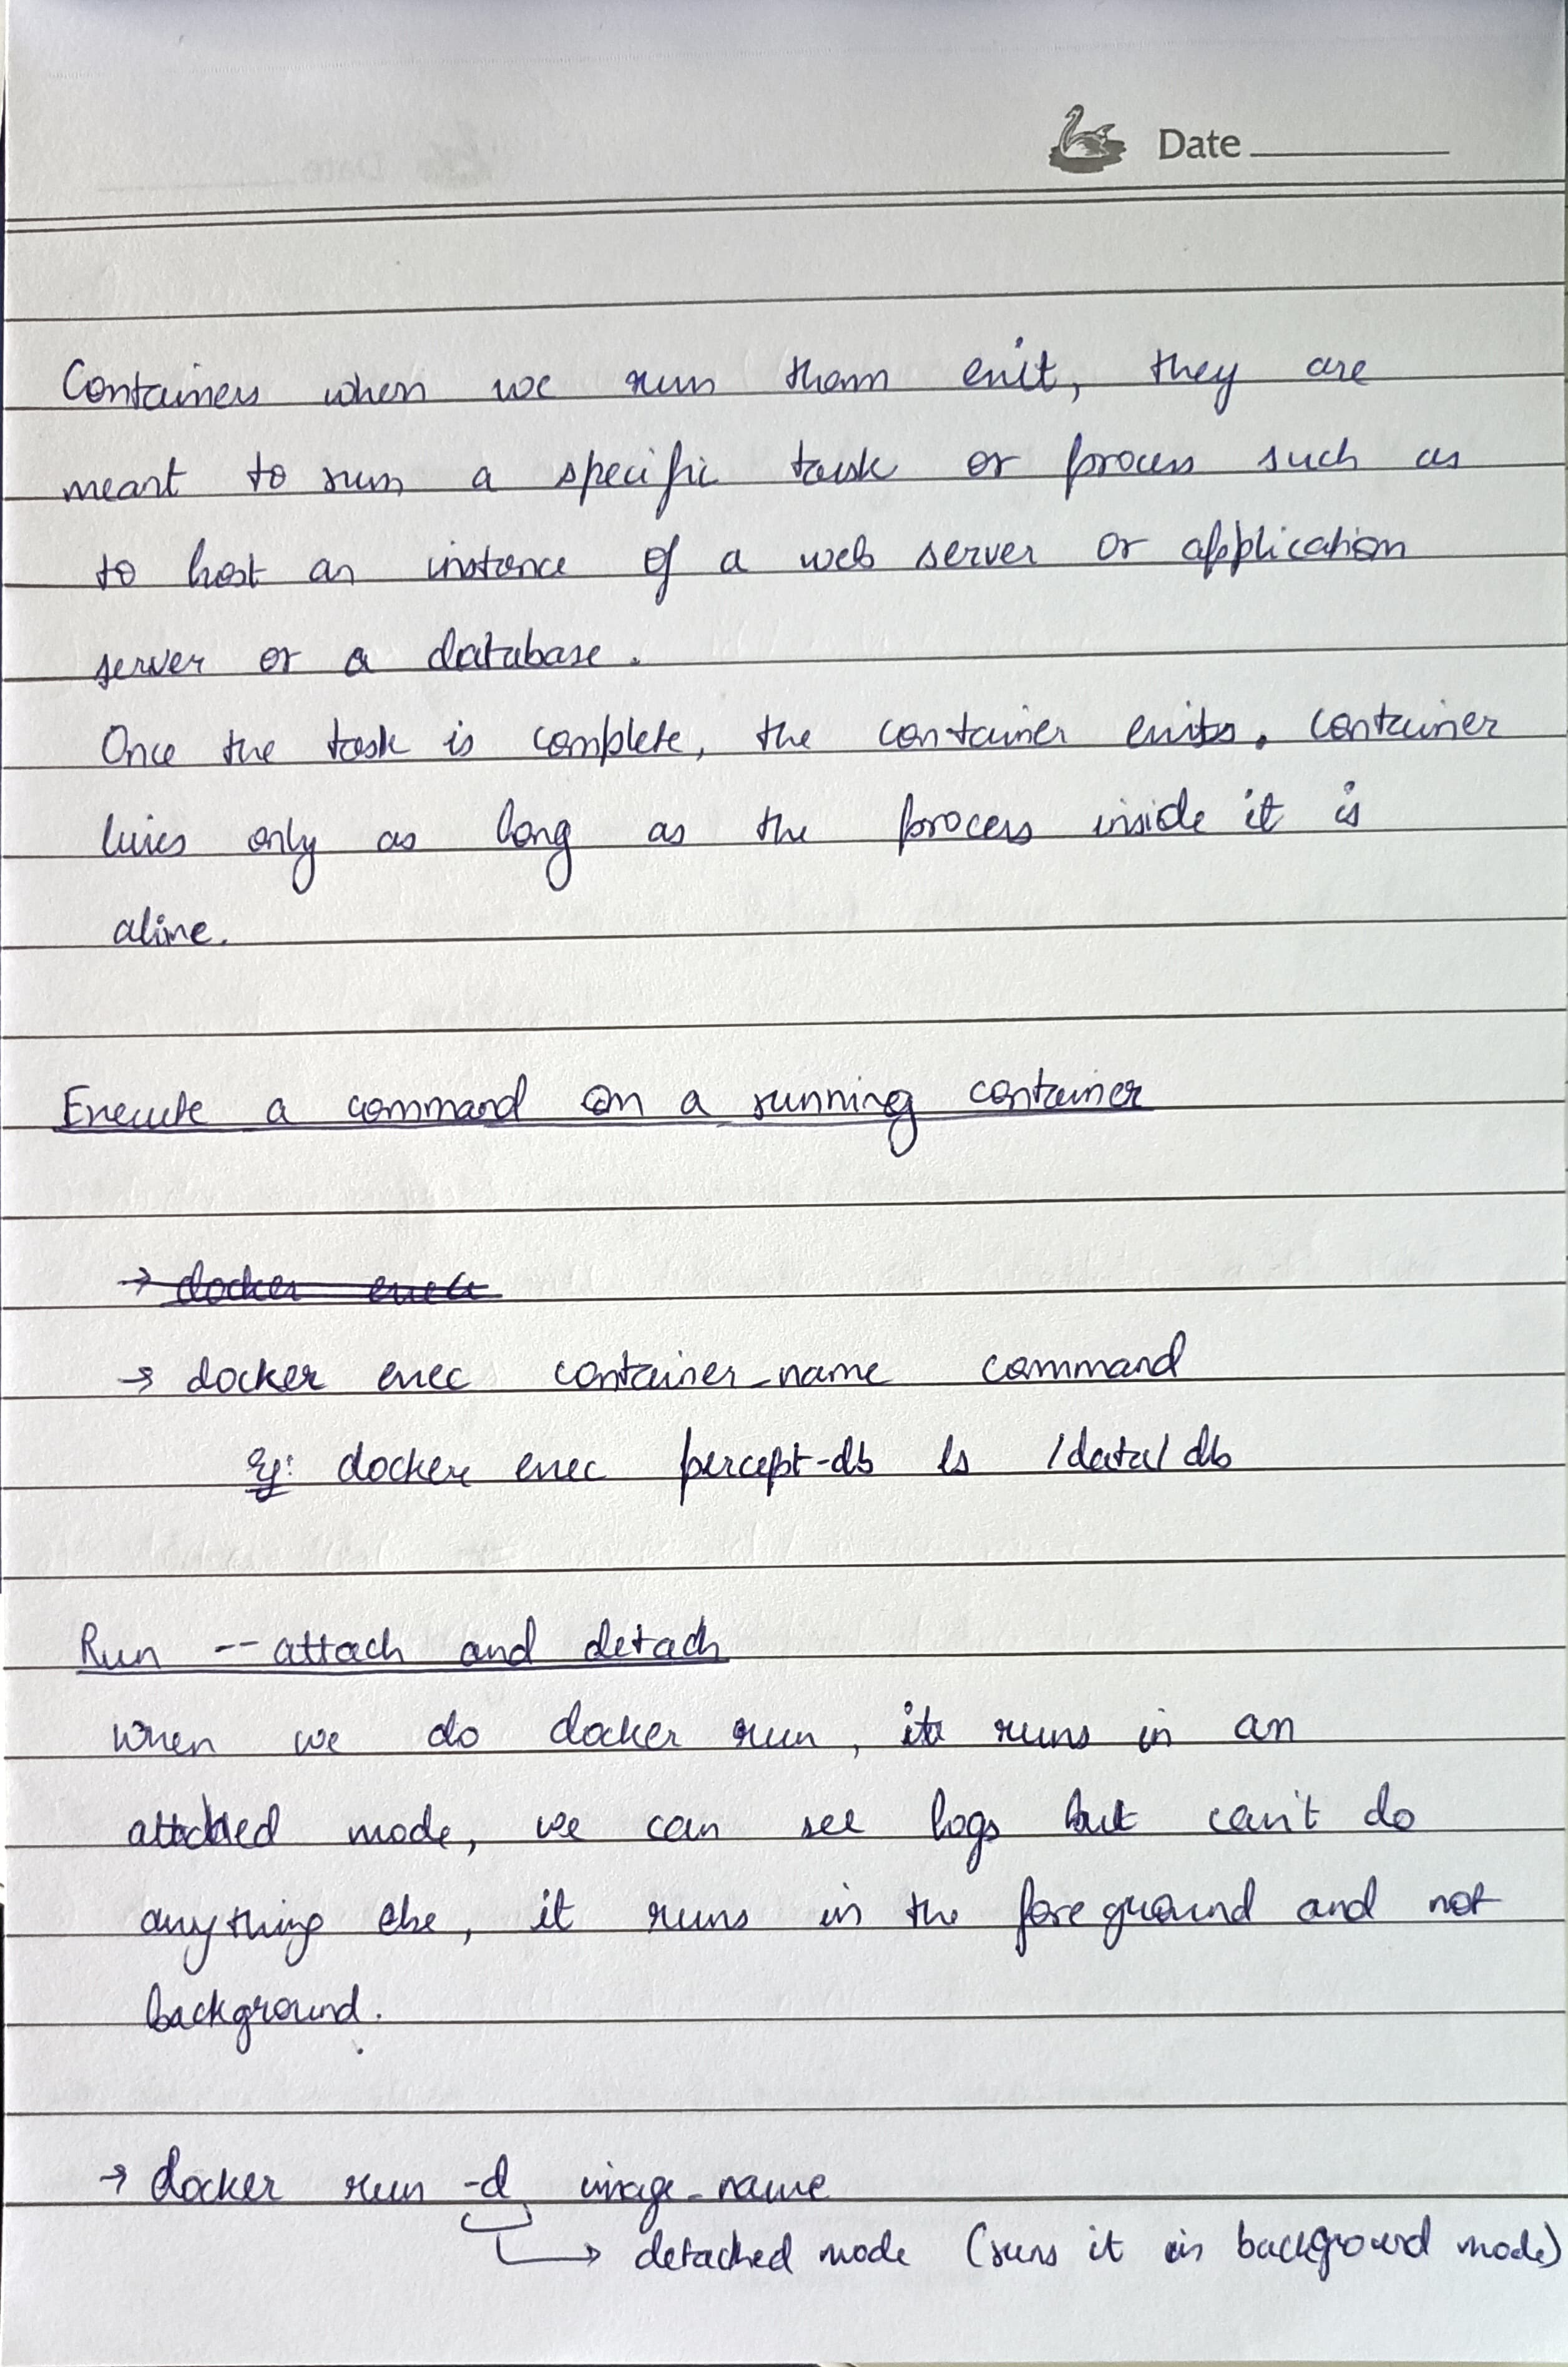 Date
Containers when we run them exit, they are
meant to run a specific task or process such as
to host an instance of a web server or application
server or a database.
Once the task is complete, the container exits. Container
lives only as long as the process inside it is
alive.
Execute a command on a running container
→ docker exec
→ docker exec container_name command
Eg: docker exec percept-db ls /data/db
Run -- attach and detach
When we do docker run, it runs in an
attached mode, we can see logs but can't do
anything else, it runs in the foreground and not
background.
→ docker run -d image_name
→ detached mode (runs it in background mode)